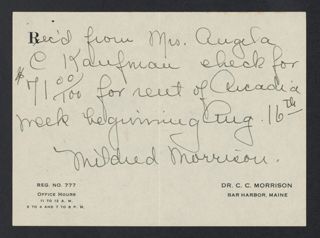 Rec'd from Mrs. Angela
C Kaufman check for
$71 00/100 for rent of Arcadia
week beginning Aug. 16th
Mildred Morrison.
REG. NO. 777
OFFICE HOURS
11 TO 12 A. M.
2 TO 4 AND 7 TO 8 P. M.
DR. C. C. MORRISON
BAR HARBOR, MAINE